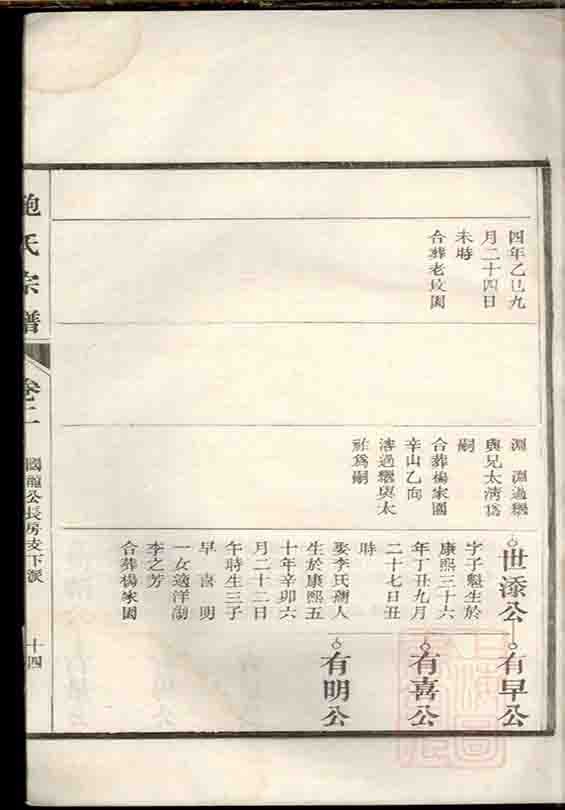 四年乙巳九
月二十四日
未時
合葬老坟園
淵 淵過繼
與兄太淸爲
嗣
合葬楊家園
辛山乙向
濤過繼與太
爲嗣
世添公
字子魁生於
康熙三十六
年丁丑九月
二十七日丑
時
娶李氏孺人
生於康熙五
十年辛卯六
月二十二日
午時生三子
早 喜 明
一女適洋湖
李之芳
合葬楊家園
有早公
有喜公
有明公
鮑氏宗譜
卷二
國龍公長房支下派
十四